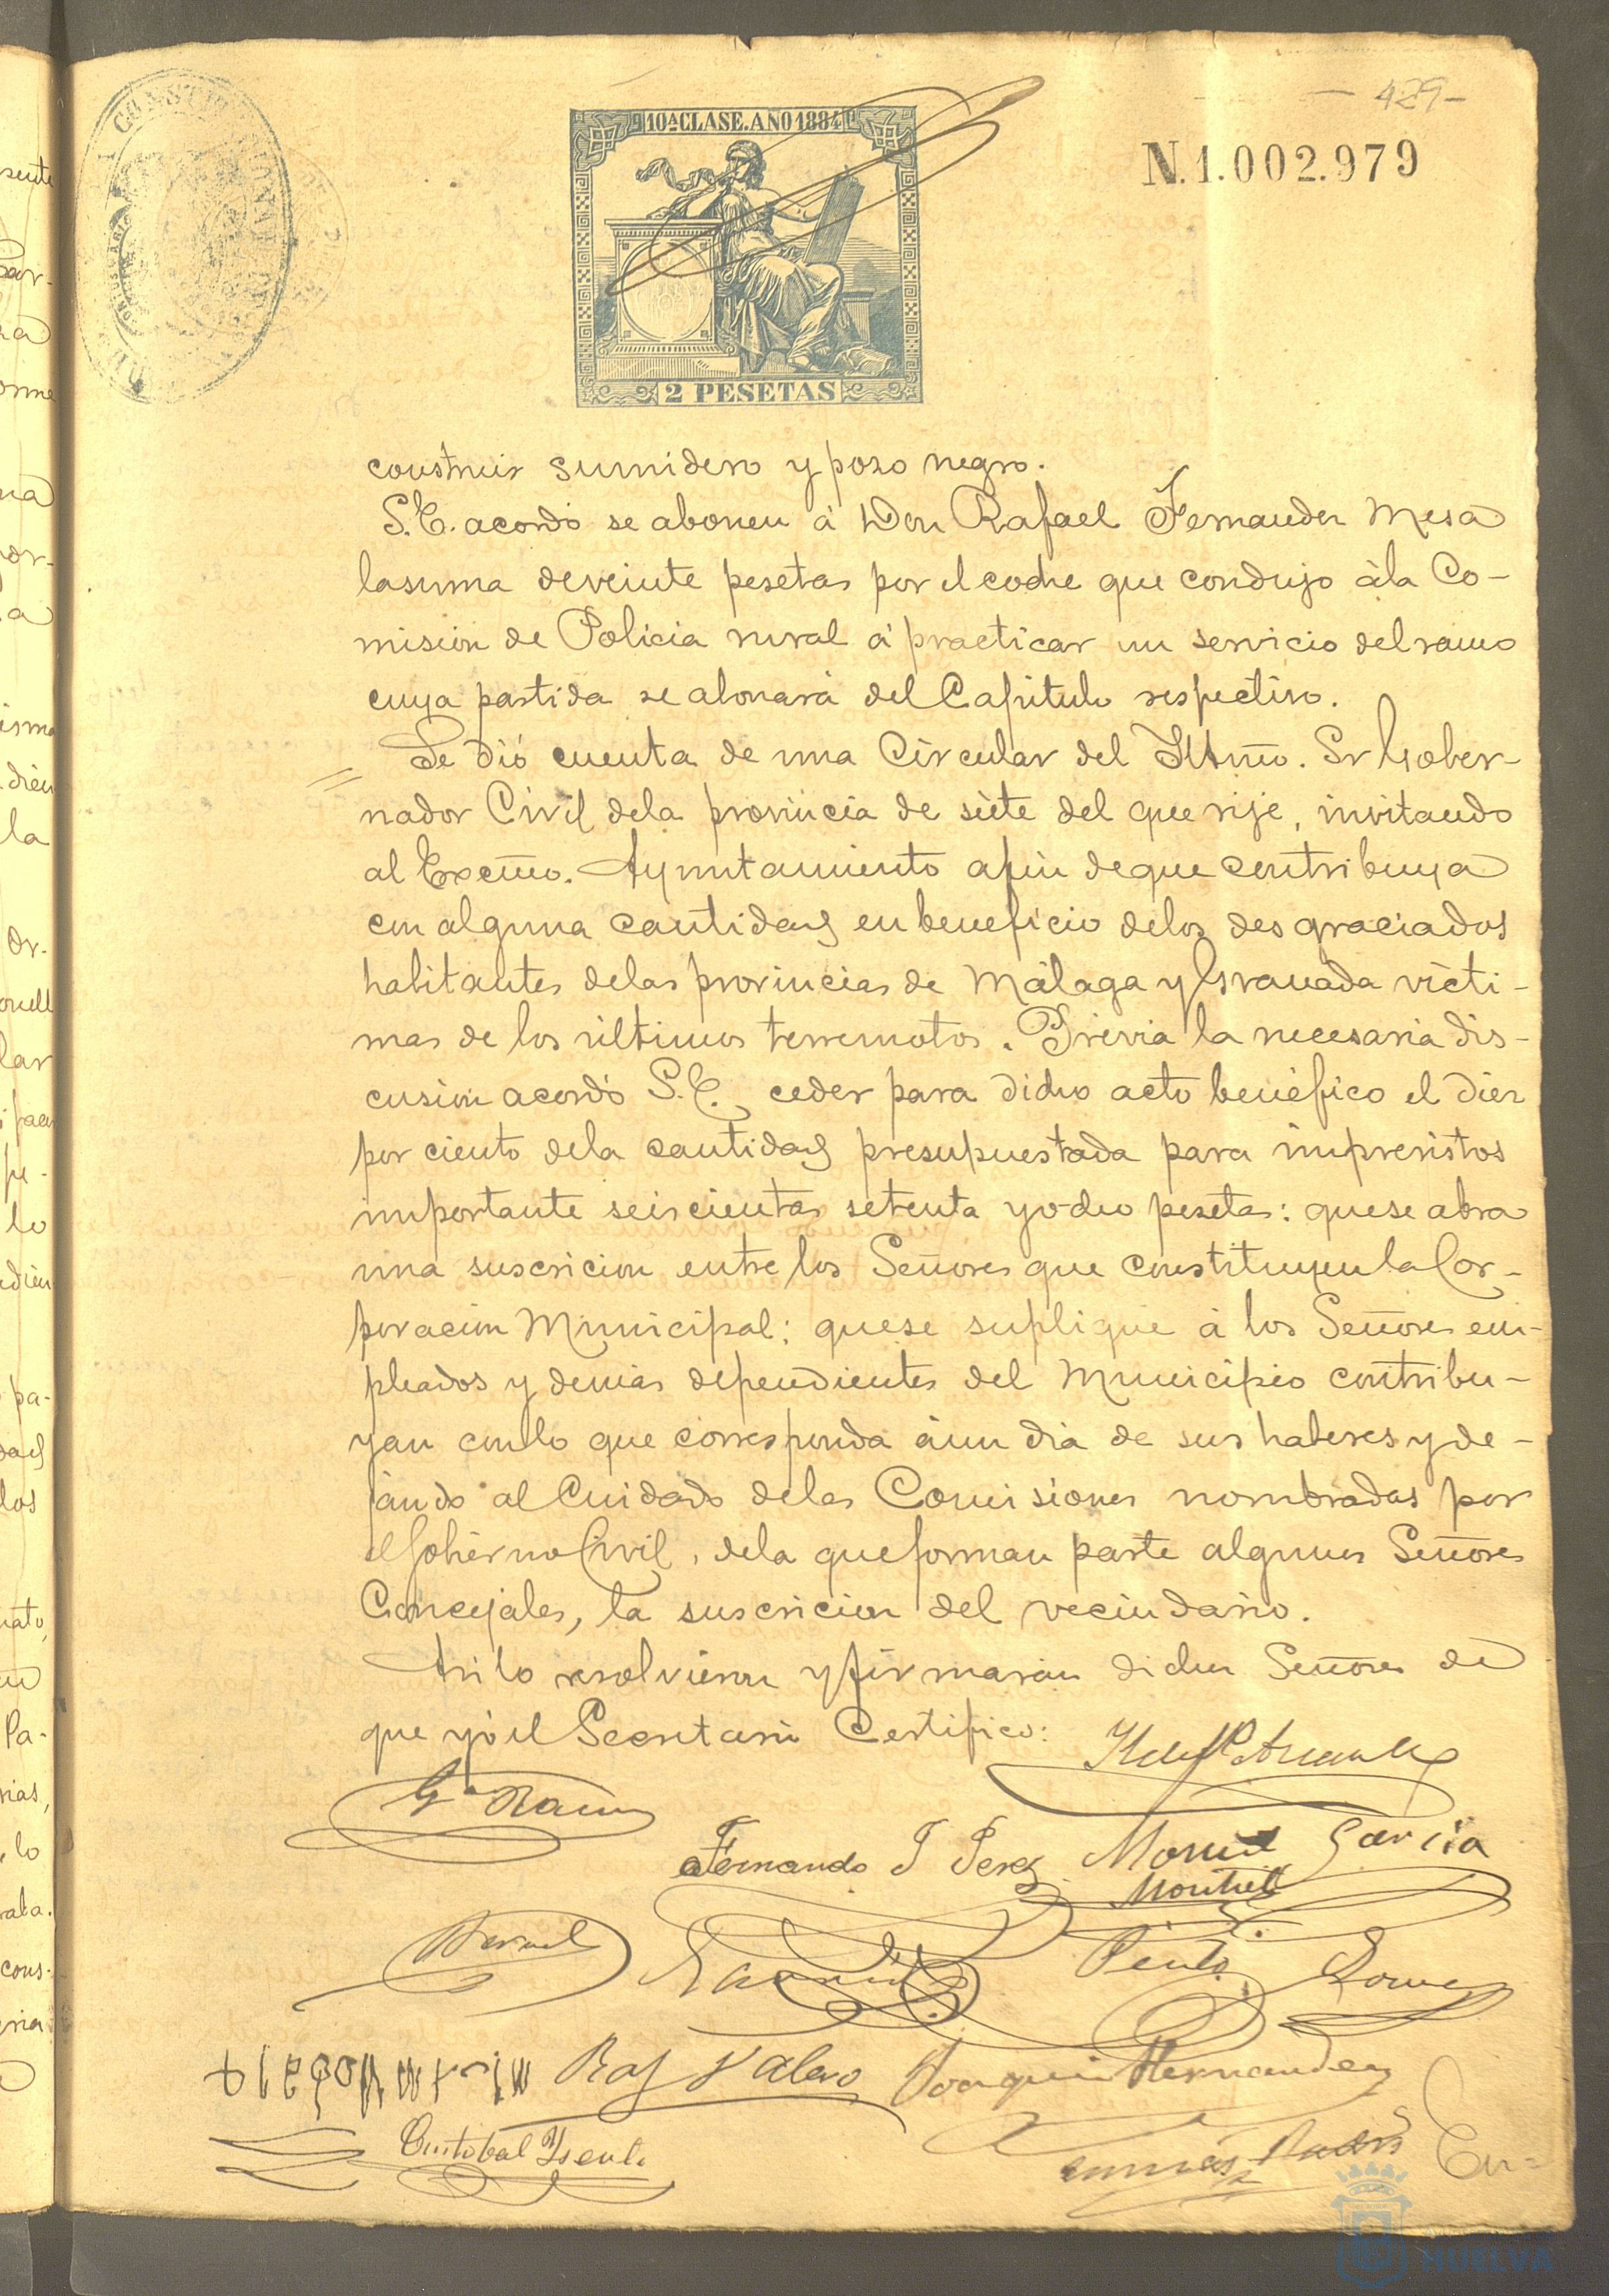 429-
10ª CLASE. AÑO 1884
N.1.002.979
2 PESETAS
construir sumidero y pozo negro.
S.E. acordó se abonen á Don Rafael Fernandez Mesa
la suma de veinte pesetas por el coche que condujo á la Co-
misión de Policia rural á practicar un servicio del ramo
cuya partida se abonará del Capítulo respectivo.
Se dió cuenta de una Circular del Iltmo. Sr Gober-
nador Civil de la provincia de siete del que rije, invitando
al Excmo. Ayuntamiento a fin de que contribuya
con alguna cantidad en beneficio de los desgraciados
habitantes de las provincias de Málaga y Granada vícti-
mas de los últimos terremotos. Previa la necesaria dis-
cusión acordó S.E. ceder para dicho acto benéfico el diez
por ciento de la cantidad presupuestada para imprevistos
importante seiscientas setenta y ocho pesetas: que se abra
una suscricion entre los Señores que constituyen la Cor-
poración Municipal: que se suplique á los Señores em-
pleados y demás dependientes del Municipio contribu-
yan con lo que corresponda á un día de sus haberes y de-
jando al Cuidado de las Comisiones nombradas por
el Gobierno Civil, de la que forman parte algunos Señores
Concejales, la suscricion del vecindario.
Asi lo resolvieron y firmarán dichos Señores de
que yó el Secretario Certifico:
Fernando J Perez Manuel Garcia
Montiel
Pinto Gomez
Raf Valero Joaquin Hernandez
Cristobal
En=
HUELVA